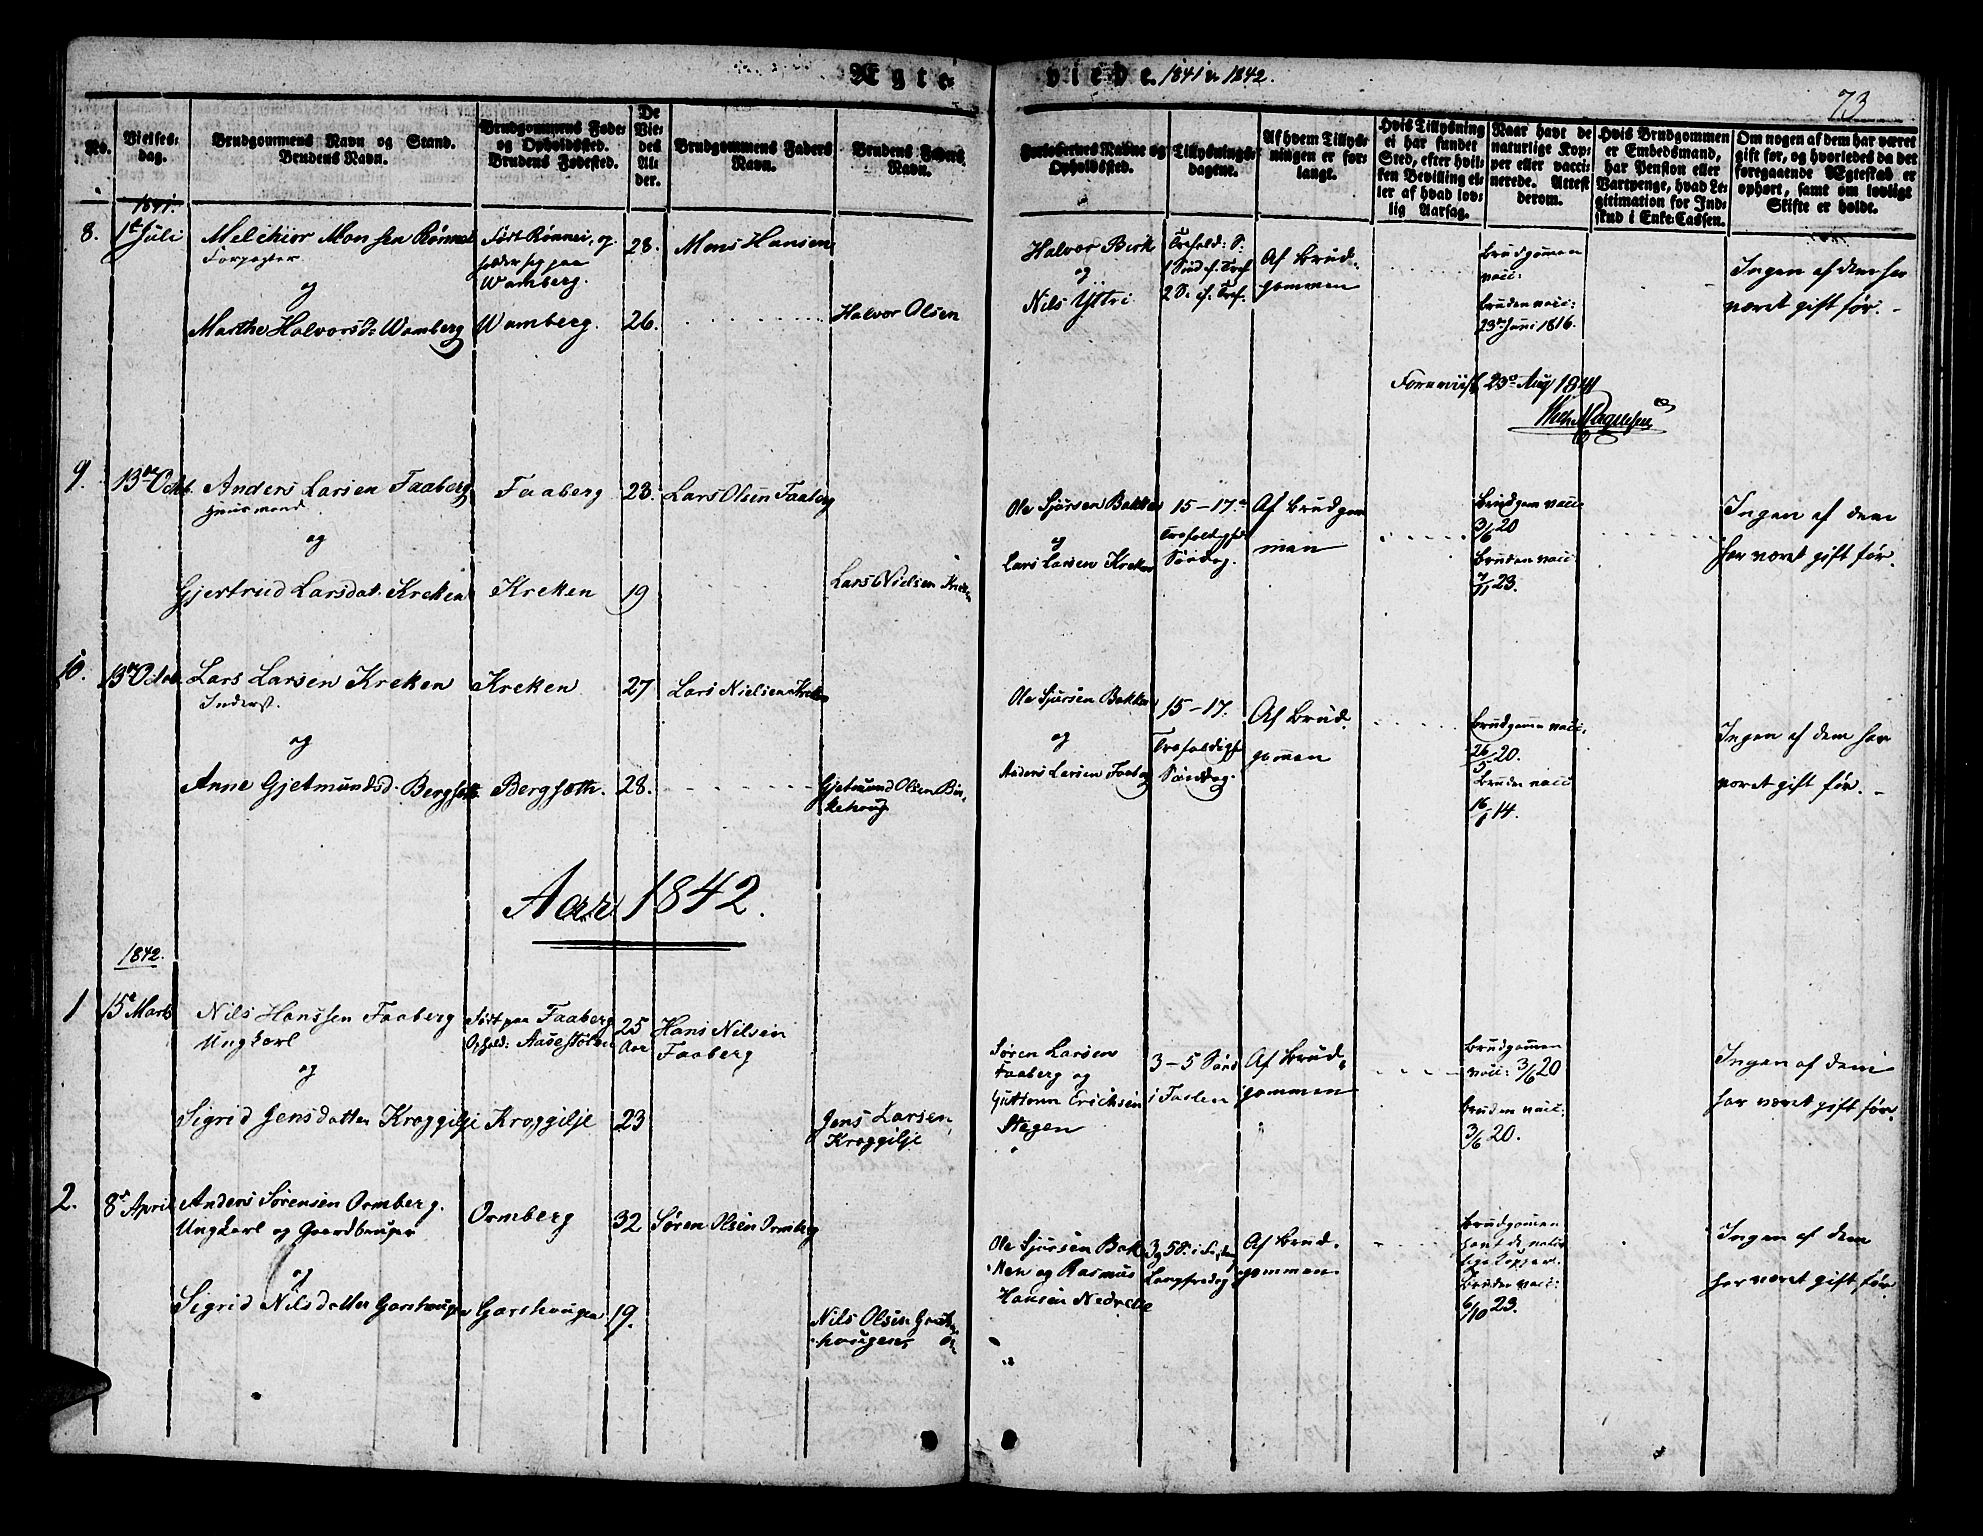 Ægte viede 1841 & 1842.
73
No.
Vielses-dag.
Brudgommens Navn og Stand.
Brudens Navn.
Brudgommens Føde-
og Opholdssted.
Brudens Fødested.
De
Vie-
des
Al-
der.
Brudgommens Faders
Navn.
Brudens Faders
Navn.
Forlovernes Navne og
Opholdssted.
Tillysnings-
dagene.
Af hvem Tillys-
ningen er for-
langt.
Hvis Tillysning
ei har fundet
Sted, efter hvil-
ken Bevilling el-
ler af hvad lov-
lig Aarsag.
Naar havt de
naturlige Kop-
per eller vacci-
nerede. Attest
derom.
Hvis Brudgommen
er Embedsmand,
har Pension eller
Vartpenge, hvad Le-
gitimation for Ind-
skud i Enke-Cassen.
Om nogen af dem har været
gift før, og hvorledes da det
foregaaende Ægteskab er
ophørt, samt om lovligt
Skifte er holdt.
1841.
8. 1ste Juli Melchior Monsen Rønnei
Forpagter
og
Marthe Halvorsd. Wamberg
Født Rønnei, og
holder sig paa
Wamberg.
Wamberg.
28.
26.
Mons Hansen
Halvor Olsen
Halvor Birk
og
Nils Yttri
Trefold: S:
1 Sönd. ef. Tref.
2 S: ef. Tref.
Af Brud-
gommen
Brudgommen
vacc:
Bruden vacc:
23de Juni 1816.
Ingen af dem har
været gift før. -
Foreviist 23de Aug 1841
9. 13de Octob. Anders Larsen Faaberg
Huusmand
og
Gjertrud Larsdat. Kreken
Faaberg
Kreken
23.
19
Lars Olsen Faaberg
Lars Nielsen Kreken
Ole Sjursen Bakken
og
Lars Larsen Kreken
15-17de
Trefoldigheds
Søndag.
Af Brudgom
men
Brudgom vacc:
3/6 20
Bruden vacc:
7/11 23.
Ingen af dem
har været gift før.
10. 13de Octob. Lars Larsen Kreken
Inderst.
og
Anne Gjetmundsd. Bergsæth
Kreken
Bergsæth.
27
28.
Lars Nielsen Kreken
Gjetmund Olsen Bir-
kehaug
Ole Sjursen Bakken
og
Anders Larsen Faaberg
15-17.
Trefoldigh.
Sønddag.
Af Brud-
gommen
Brudgommen vacc.
26/5 20.
Bruden vacc
16/1 14.
Ingen af dem har
været gift før. -
Aar 1842.
1842.
1 15de Marts Nils Hanssen Faaberg
Ungkarl
og
Sigrid Jensdatter Kroggilje
Født paa Faaberg
Ophold: Aasestølen
Kroggilje
25
Aar
23
Hans Nilsen
Faaberg
Jens Larsen
Kroggilje
Søren Larsen
Faaberg og
Guttorm Erichsen
Stegen
3-5 Sønd
i Fasten
Af Brud-
gommen
Brudgommen
vacc: 3/6 20
Bruden vacc.
3/6 20.
Ingen af dem
har været gift før.
2. 8de April Anders Sørensen Ormberg.
Ungkarl og Gaardbruger
og
Sigrid Nilsdatter Garshaugen
Ormberg
Garshaugen
32
19.
Søren Olsen Ormberg
Nils Olsen
haugen
Ole Sjursen Bak-
ken og Rasmus
Hansen Nedrelie
3, 5 S. i Fasten
Langfredag
Af Brud-
gommen
Brudgommen
havt de natur
lige Kopper.
Bruden vacc:
6/10 23.
Ingen af dem
har været gift før.